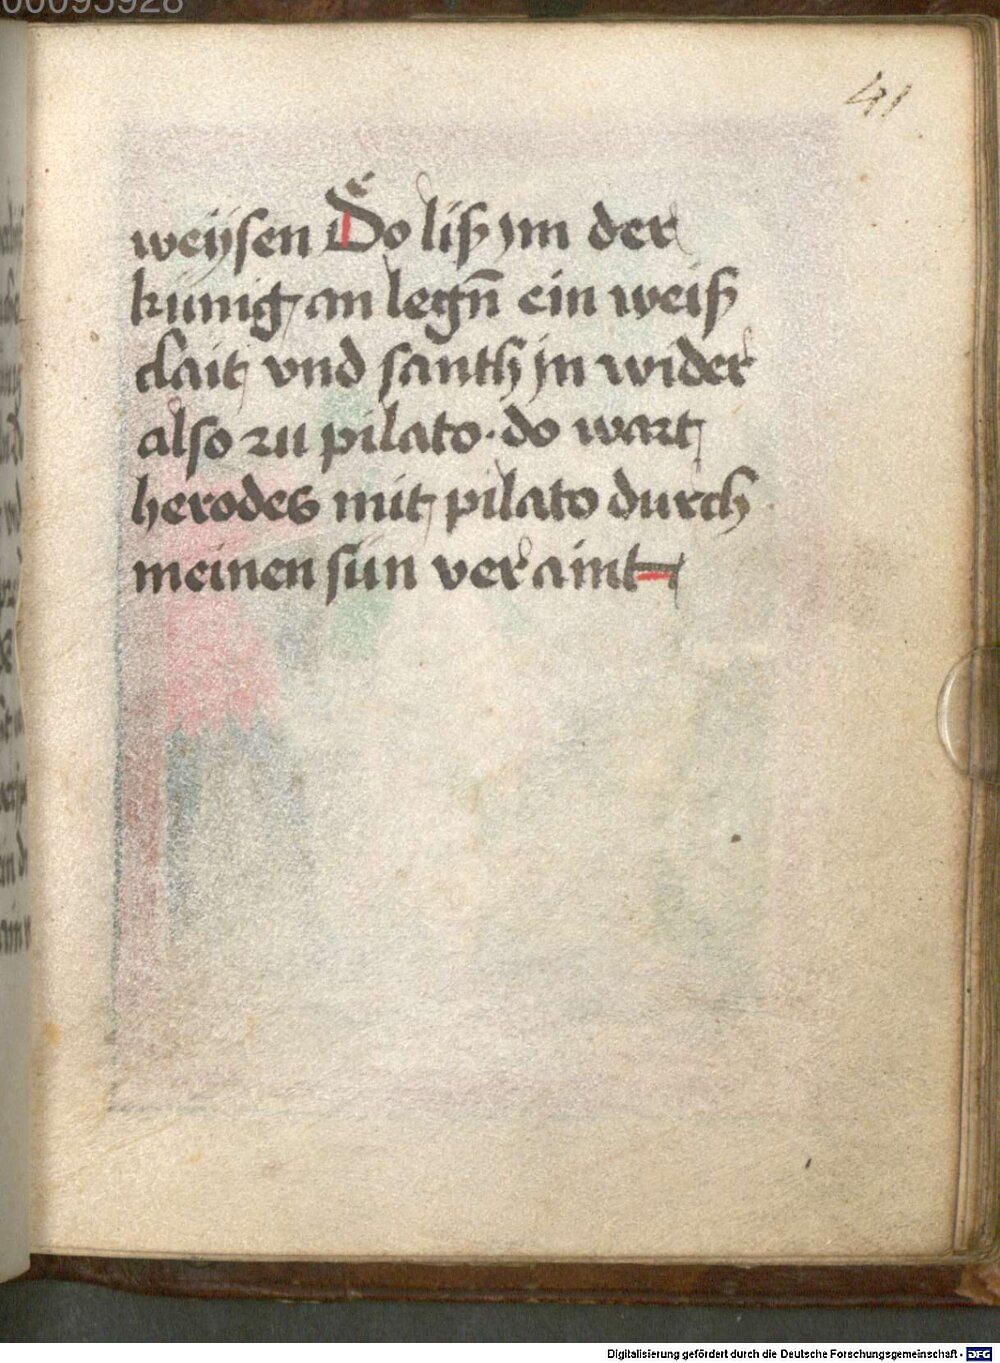 00095928
41
weÿsen Do liß ym der
kunig an legn̄ ein weiß
clait vnd santh jn wider
also zu pilato · do wart
herodes mit pilato durch
meinen sun veraint
Digitalisierung gefördert durch die Deutsche Forschungsgemeinschaft - DFG